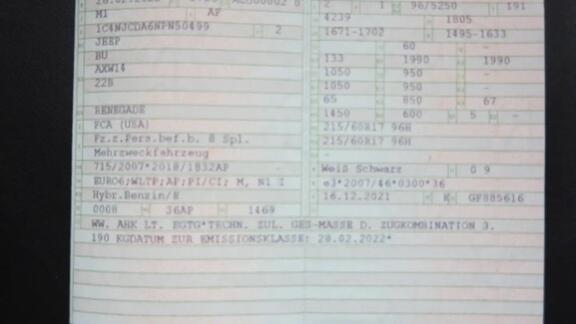 2 1 96/5250 191
M1 AF 4239 1805
1C4NJCDA6NPN50499 2 1671-1702 1495-1633
JEEP 60 -
BU 133 1980 1990
AXW14 1050 950 -
22B 1050 950 -
65 850 67
RENEGADE 1450 600 5 -
FCA (USA) 215/60R17 96H
Fz.z.Pers.bef.b. 8 Spl. 215/60R17 96H
Mehrzweckfahrzeug -
715/2007*2018/1832AP Weiß Schwarz 0 9
EURO6;WLTP;AP;PI/CI; M, N1 I e3*2007/46*0300*36
Hybr.Benzin/E 16.12.2021 K GF885616
0008 36AP 1469
WW. AHK LT. EGTG*TECHN. ZUL. GES-MASSE D. ZUGKOMBINATION 3.
190 KGDATUM ZUR EMISSIONSKLASSE: 28.02.2022*